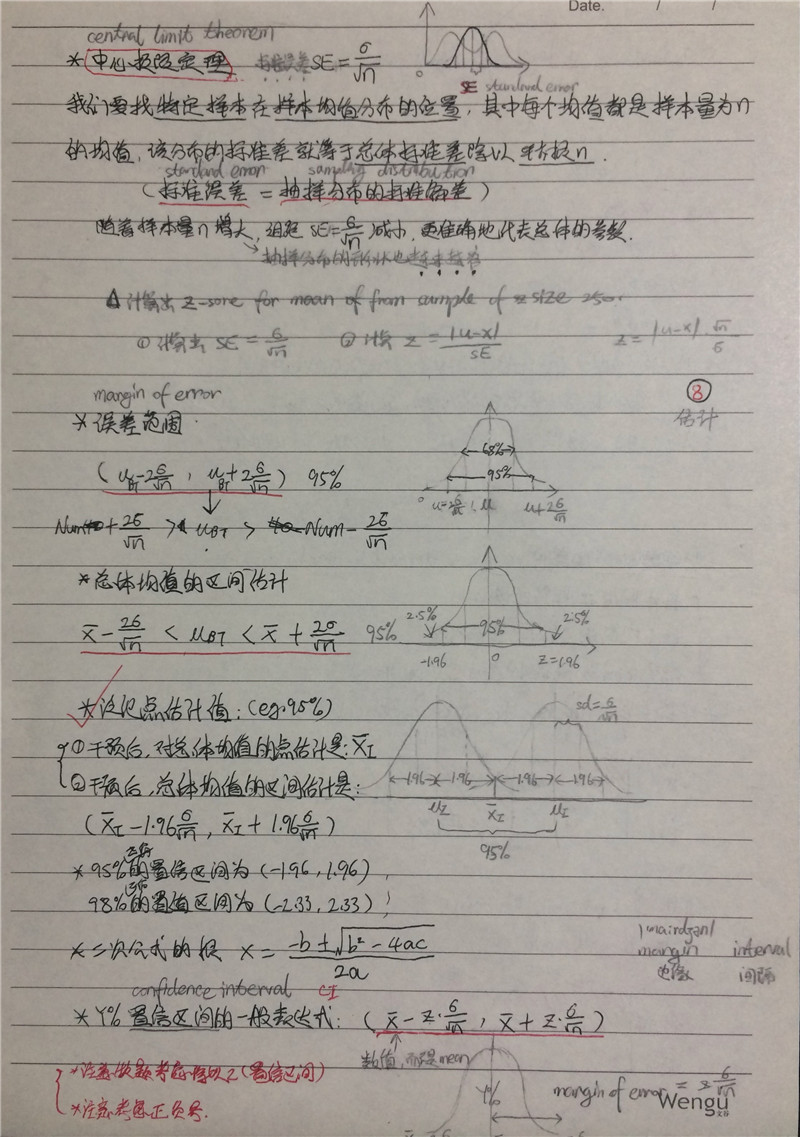 Date. / /
central limit theorem
* 中心极限定理 标准误差 SE = σ/√n
SE standard error
我们要找特定样本在样本均值分布的位置，其中每个均值都是样本量为n
的均值，该分布的标准差就等于总体标准差除以 平方根n.
standard error sampling distribution
(标准误差 = 抽样分布的标准偏差)
随着样本量n增大, SE=σ/√n 减小, 更准确地代表总体的参数.
抽样分布的形状也越来越窄
计算出 z-sore for mean of from sample of z size 250.
① 计算出 SE = σ/√n ② 计算 z = |u-x|/SE z = |u-x|·√n/σ
⑧
估计
margin of error
* 误差范围
(u_BT-2σ/√n, u_BT+2σ/√n) 95%
68%
95%
0 u-2σ/√n μ u+2σ/√n
Num + 2σ/√n > μ_BT > Num - 2σ/√n
* 总体均值的区间估计
x̄ - 2σ/√n < μ_BT < x̄ + 2σ/√n 95%
2.5% 95% 2.5%
-1.96 0 Z=1.96
* 谨记点估计值: (eg.95%)
sd=σ/√n
①干预后, 对总体均值的点估计是: x̄_I
②干预后, 总体均值的区间估计是:
1.96 1.96 1.96 1.96
μ_I x̄_I μ_I
95%
(x̄_I - 1.96σ/√n, x̄_I + 1.96σ/√n)
* 95%的置信区间为 (-1.96, 1.96),
98%的置信区间为 (-2.33, 2.33)
* 二次公式的根 x = (-b±√(b²-4ac))/2a
margin interval
边缘 间隔
confidence interval CI
* Y% 置信区间的一般表达式: (x̄ - z·σ/√n, x̄ + z·σ/√n)
数值, 而不是mean
*注意做题考虑得以z (置信区间)
*注意考虑正负号.
Y%
margin of error = z σ/√n
Wengu